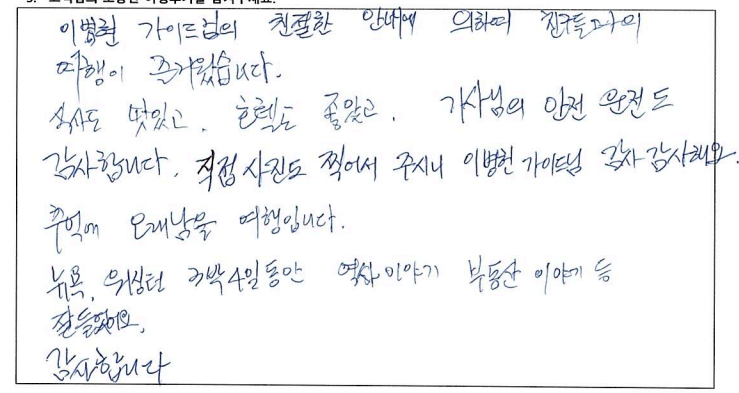 이병헌 가이드님의 친절한 안내에 의하여 친구들과의
여행이 즐거웠습니다.
식사도 맛있고, 호텔도 좋았고, 기사님의 안전 운전도
감사합니다. 직접 사진도 찍어서 주시니 이병헌 가이드님 감사 감사해요.
추억에 오래남을 여행입니다.
뉴욕, 워싱턴 3박4일동안 역사이야기 부동산 이야기 등
잘들었어요.
감사합니다